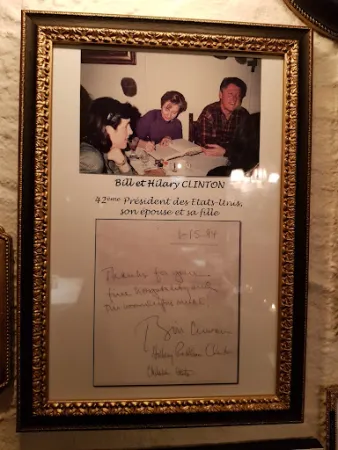 Bill et Hilary CLINTON
42ème Président des Etats-Unis,
son épouse et sa fille
Thanks for your
fine hospitality and
the wonderful meal
Hillary Rodham Clinton